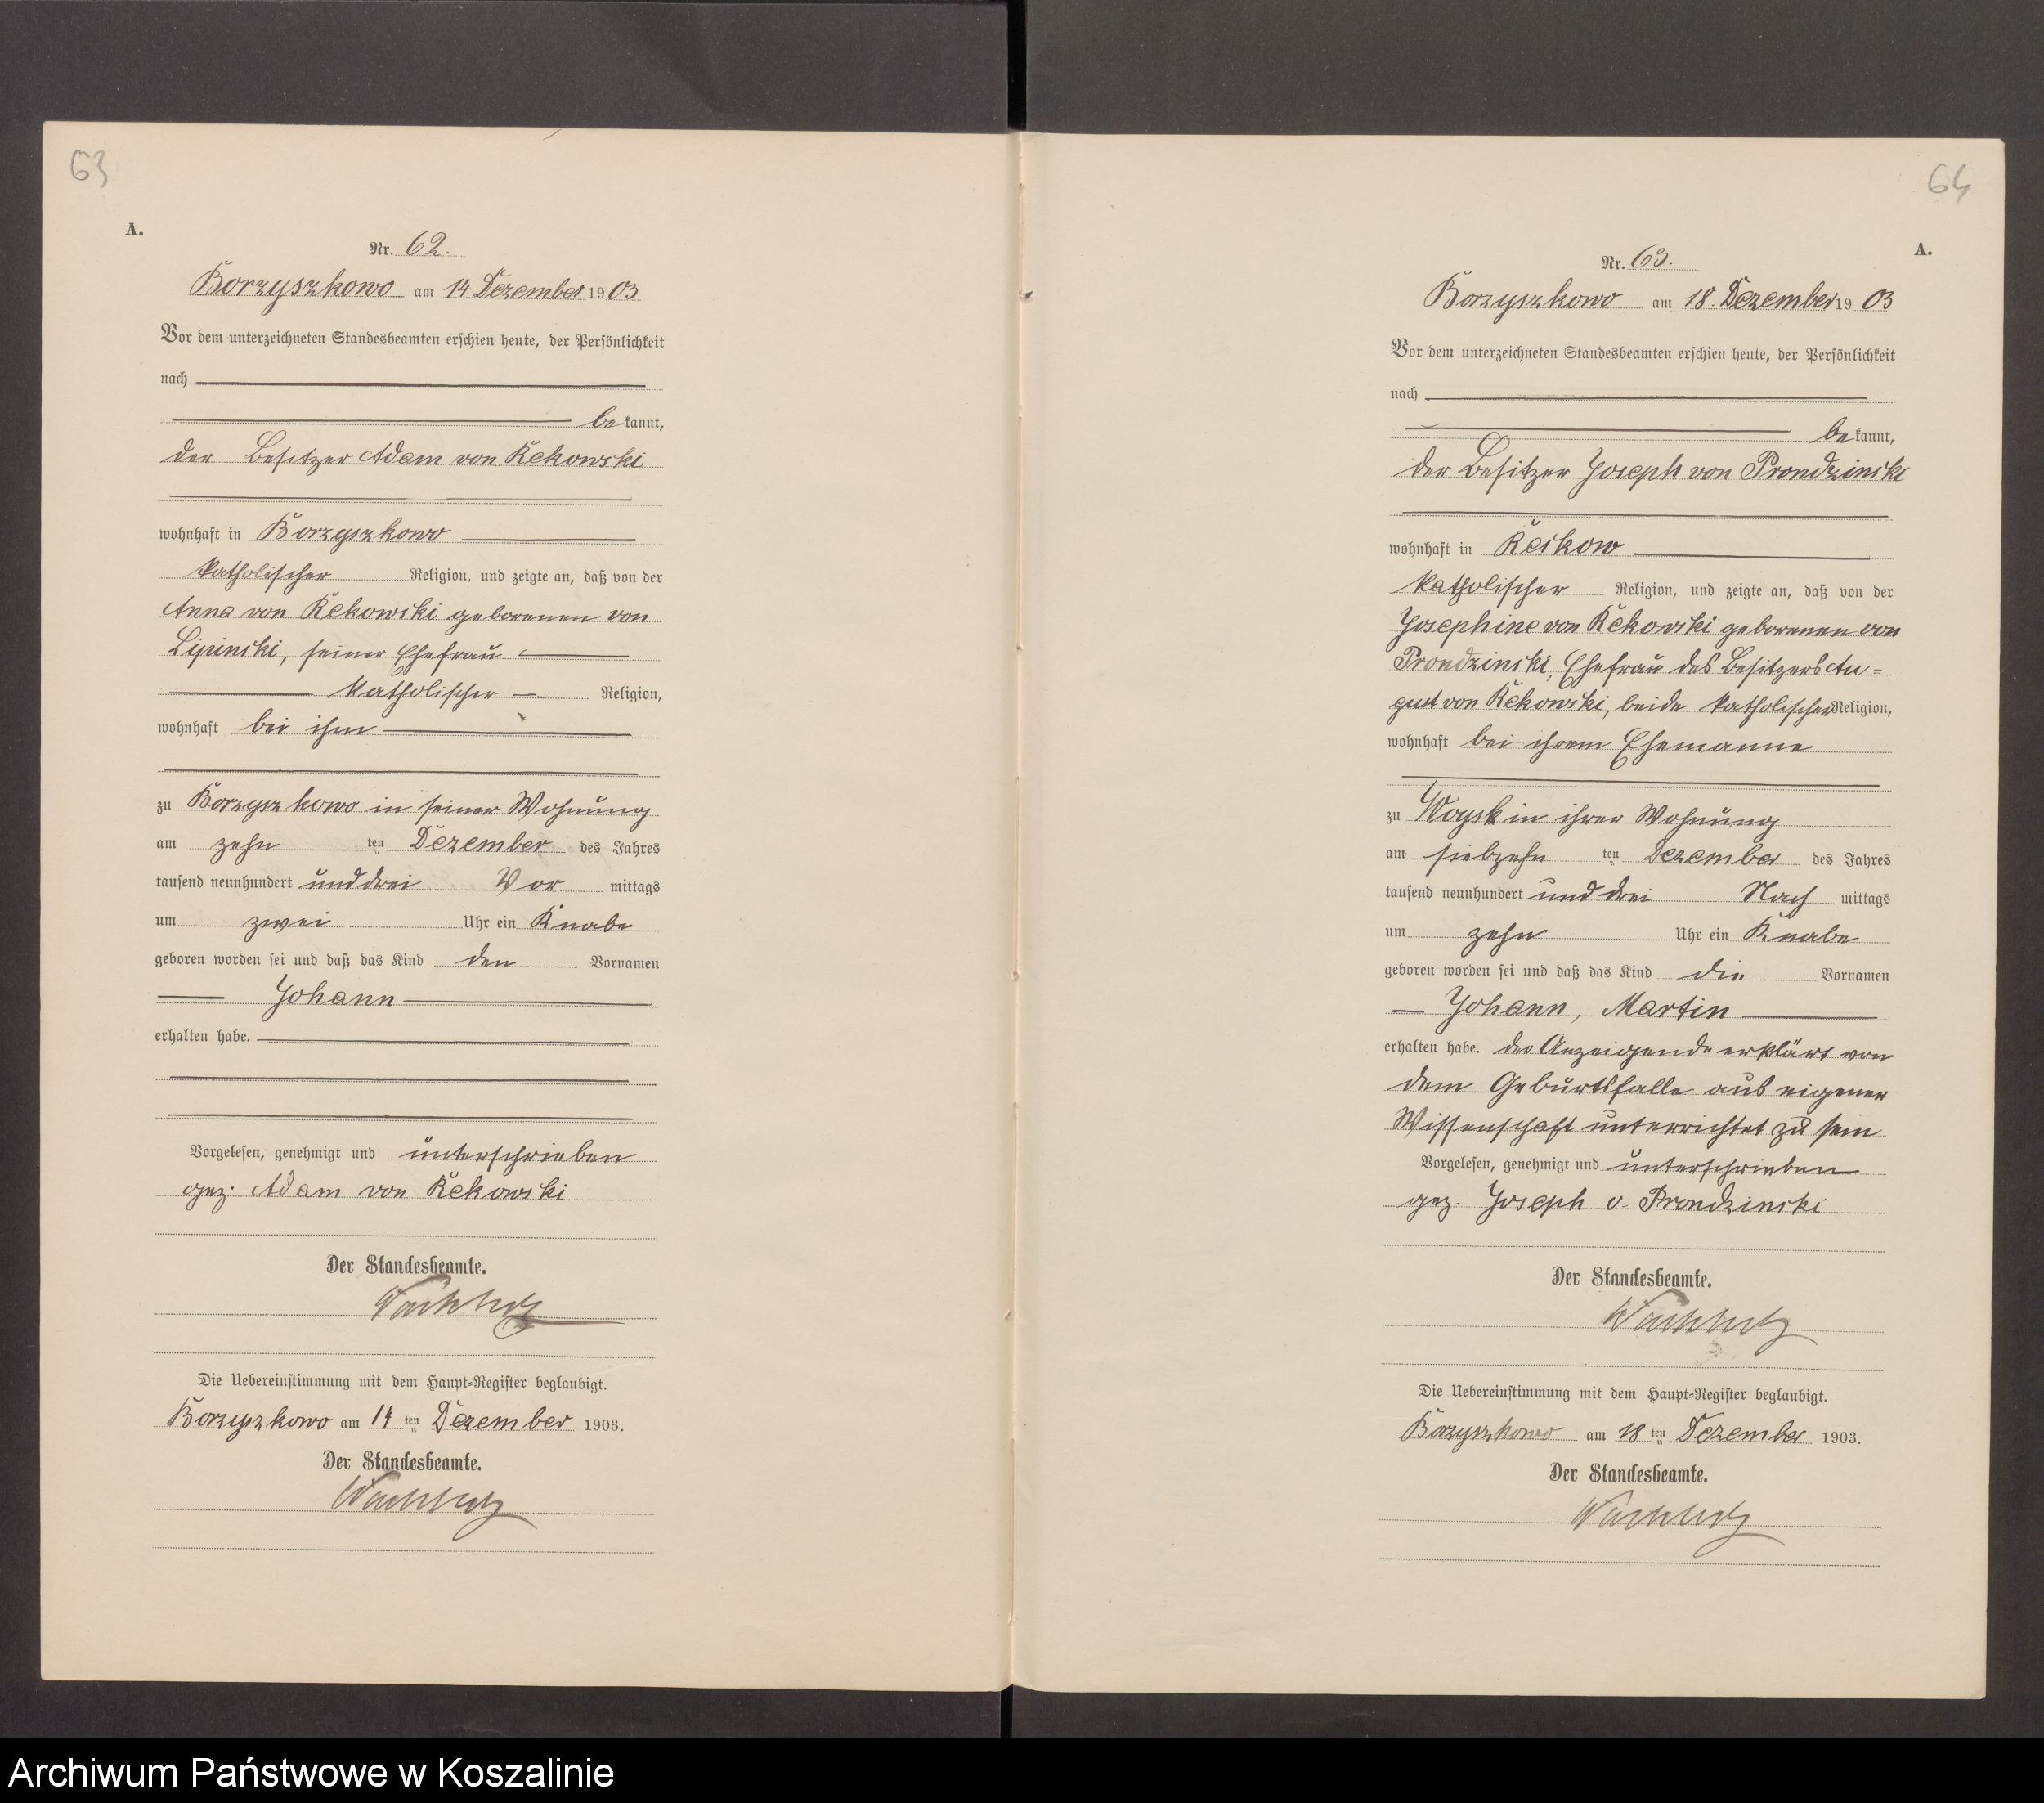 63
A.
Nr. 62.
Borzyszkowo am 14 Dezember 1903
Vor dem unterzeichneten Standesbeamten erschien heute, der Persönlichkeit
nach
bekannt,
der Besitzer Adam von Kekowski
wohnhaft in Borzyszkowo
katholischer Religion, und zeigte an, daß von der
Anna von Kekowski geborenen von
Lipinski, seiner Ehefrau
katholischer Religion,
wohnhaft bei ihm
zu Borzyszkowo in seiner Wohnung
am zehn ten Dezember des Jahres
tausend neunhundert und drei Vor mittags
um zwei Uhr ein Knabe
geboren worden sei und daß das Kind den Vornamen
Johann
erhalten habe.
Vorgelesen, genehmigt und unterschrieben
gez. Adam von Kekowski
Der Standesbeamte.
Die Uebereinstimmung mit dem Haupt-Register beglaubigt.
Borzyszkowo am 14 ten Dezember 1903.
Der Standesbeamte.
64
A.
Nr. 63.
Borzyszkowo am 18. Dezember 1903
Vor dem unterzeichneten Standesbeamten erschien heute, der Persönlichkeit
nach
bekannt,
der Besitzer Joseph von Prondzinski
wohnhaft in
katholischer Religion, und zeigte an, daß von der
Josephine von Kekowski geborenen von
Prondzinski, Ehefrau des Besitzers Au=
gust von Kekowski, beide katholischer Religion,
wohnhaft bei ihrem Ehemanne
zu Woysk in ihrer Wohnung
am siebzehn ten Dezember des Jahres
tausend neunhundert und drei Nach mittags
um zehn Uhr ein Knabe
geboren worden sei und daß das Kind die Vornamen
Johann, Martin
erhalten habe. der Anzeigende erklärt von
dem Geburtsfalle aus eigener
Wissenschaft unterrichtet zu sein
Vorgelesen, genehmigt und unterschrieben
gez. Joseph v. Prondzinski
Der Standesbeamte.
Die Uebereinstimmung mit dem Haupt-Register beglaubigt.
Borzyszkowo am 18 ten Dezember 1903.
Der Standesbeamte.
Archiwum Państwowe w Koszalinie